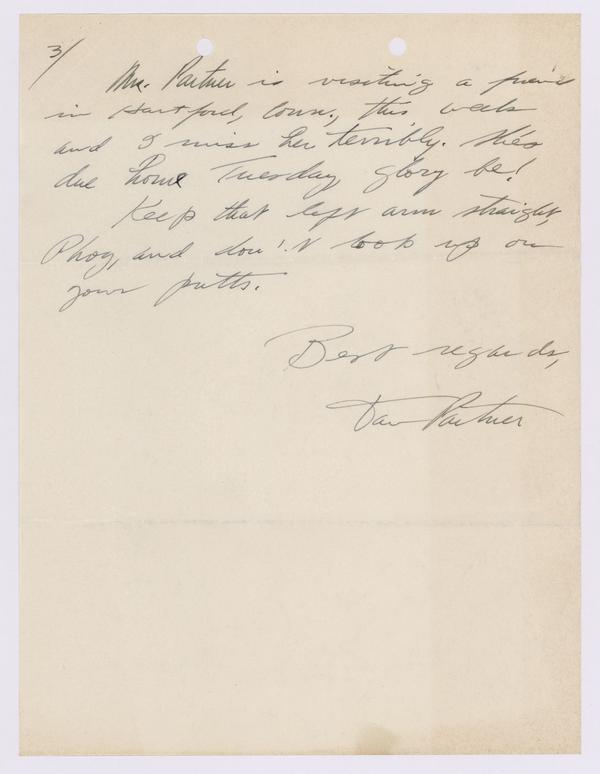 3/
Mrs. Partner is visiting a friend
in Hartford, Conn., this week
and I miss her terribly. She's
due home Tuesday, glory be!
Keep that left arm straight,
Phog, and don't look up on
your putts.
Best regards,
Dan Partner